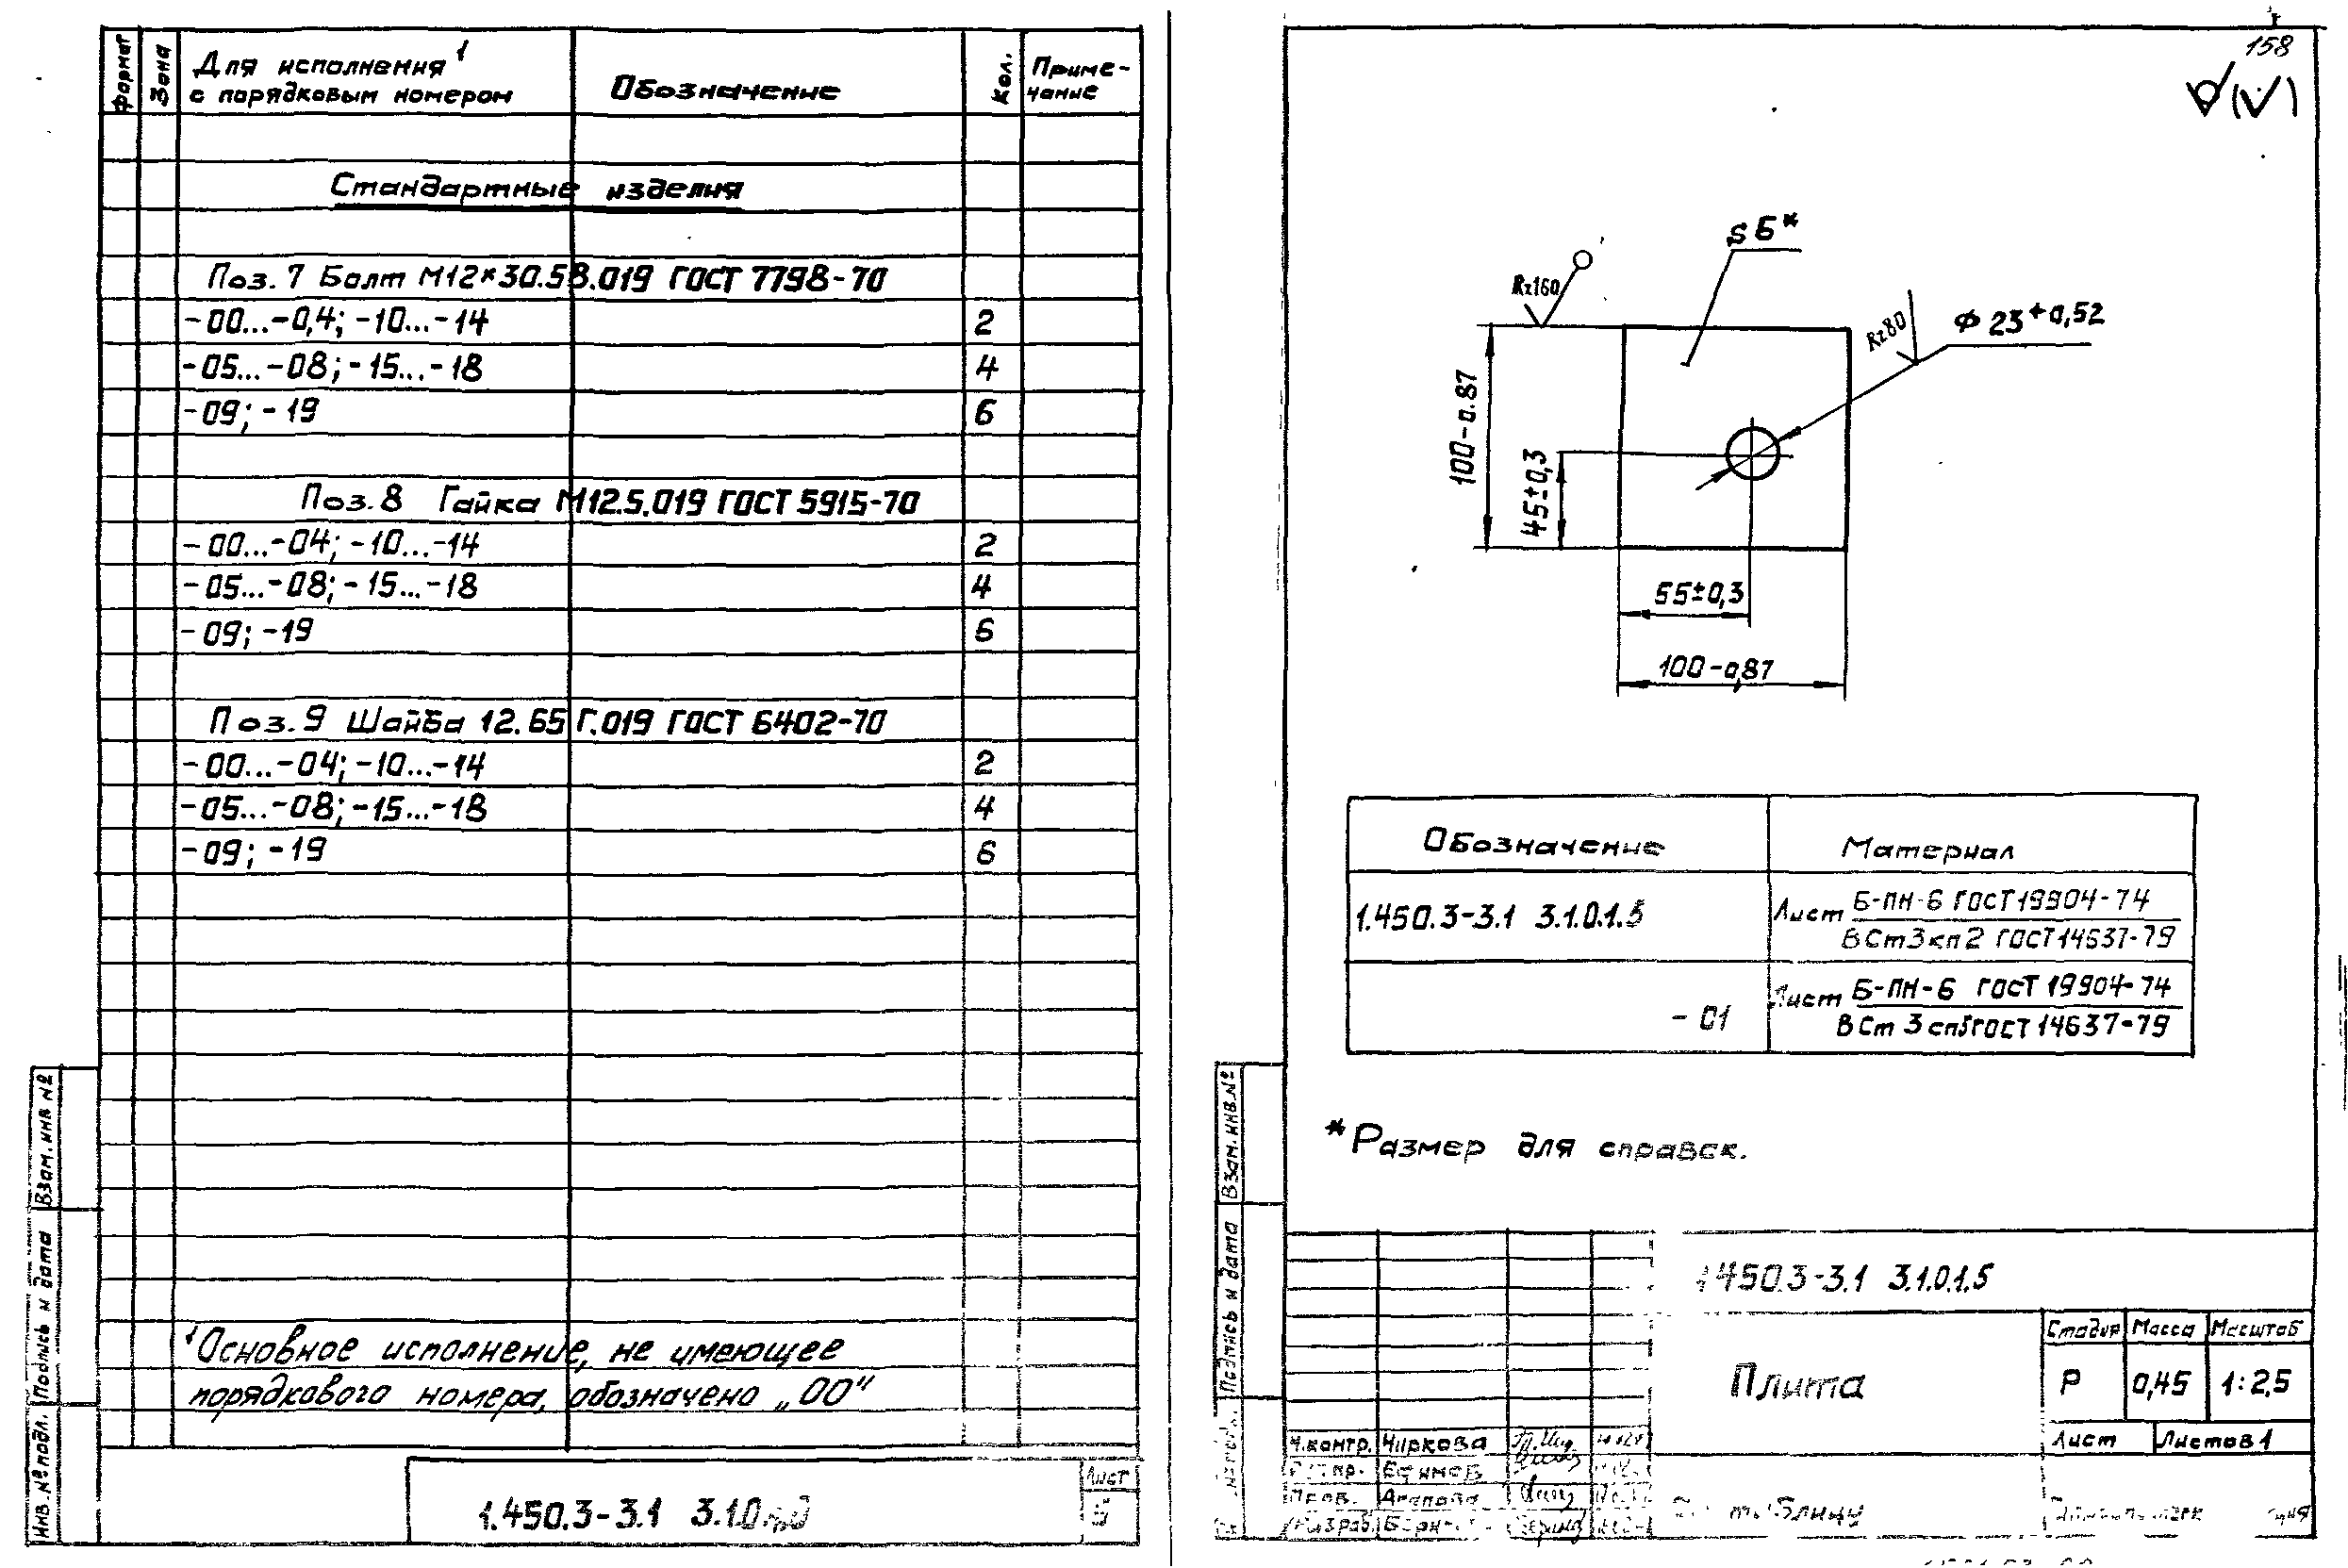 Формат
Зона
Для исполнения ¹
с порядковым номером
Обозначение
Кол.
Приме-
чание
Стандартные изделия
Поз. 7 Болт М12×30.58.019 ГОСТ 7798-70
-00...-0,4; -10...-14 2
-05...-08; -15...-18 4
-09; -19 6
Поз. 8 Гайка М12.5.019 ГОСТ 5915-70
-00...-04; -10...-14 2
-05...-08; -15...-18 4
-09; -19 6
Поз. 9 Шайба 12.65Г.019 ГОСТ 6402-70
-00...-04; -10...-14 2
-05...-08; -15...-18 4
-09; -19 6
¹ Основное исполнение, не имеющее
порядкового номера, обозначено „00"
Взам. инв №
Подпись и дата
Инв. № подл.
1.450.3-3.1 3.1.0
Лист
5
158
s 6*
Rz160
Rz80
⌀ 23 +0,52
100-0.87
45±0,3
55±0,3
100-0,87
Обозначение Материал
1.450.3-3.1 3.1.0.1.5 Лист Б-ПН-6 ГОСТ 19904-74
ВСт3кп2 ГОСТ 14637-79
-01 Лист Б-ПН-6 ГОСТ 19904-74
ВСт 3 сп5 ГОСТ 14637-79
* Размер для справок.
Взам. инв. №
Подпись и дата
1.450.3-3.1 3.1.0.1.5
Плита
Стадия Масса Масштаб
Р 0,45 1:2,5
Лист Листов 1
Н.контр. Чиркова
Ефимов
Пров. Агапова
Разраб.